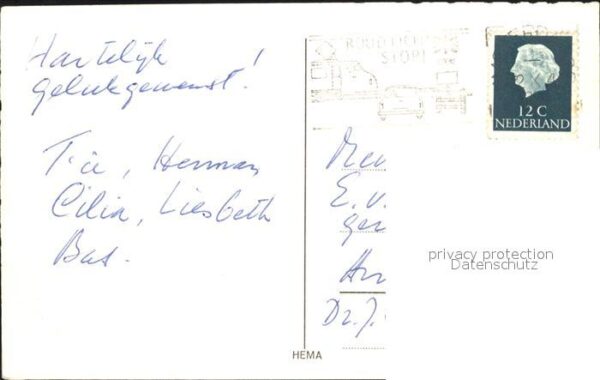 Hartelijk
gelukgewenst!
Tia, Herman
Cilia, Liesbeth
Bas.
STOP!
12 C
NEDERLAND
E. v.
privacy protection
Datenschutz
Dr. J.
HEMA